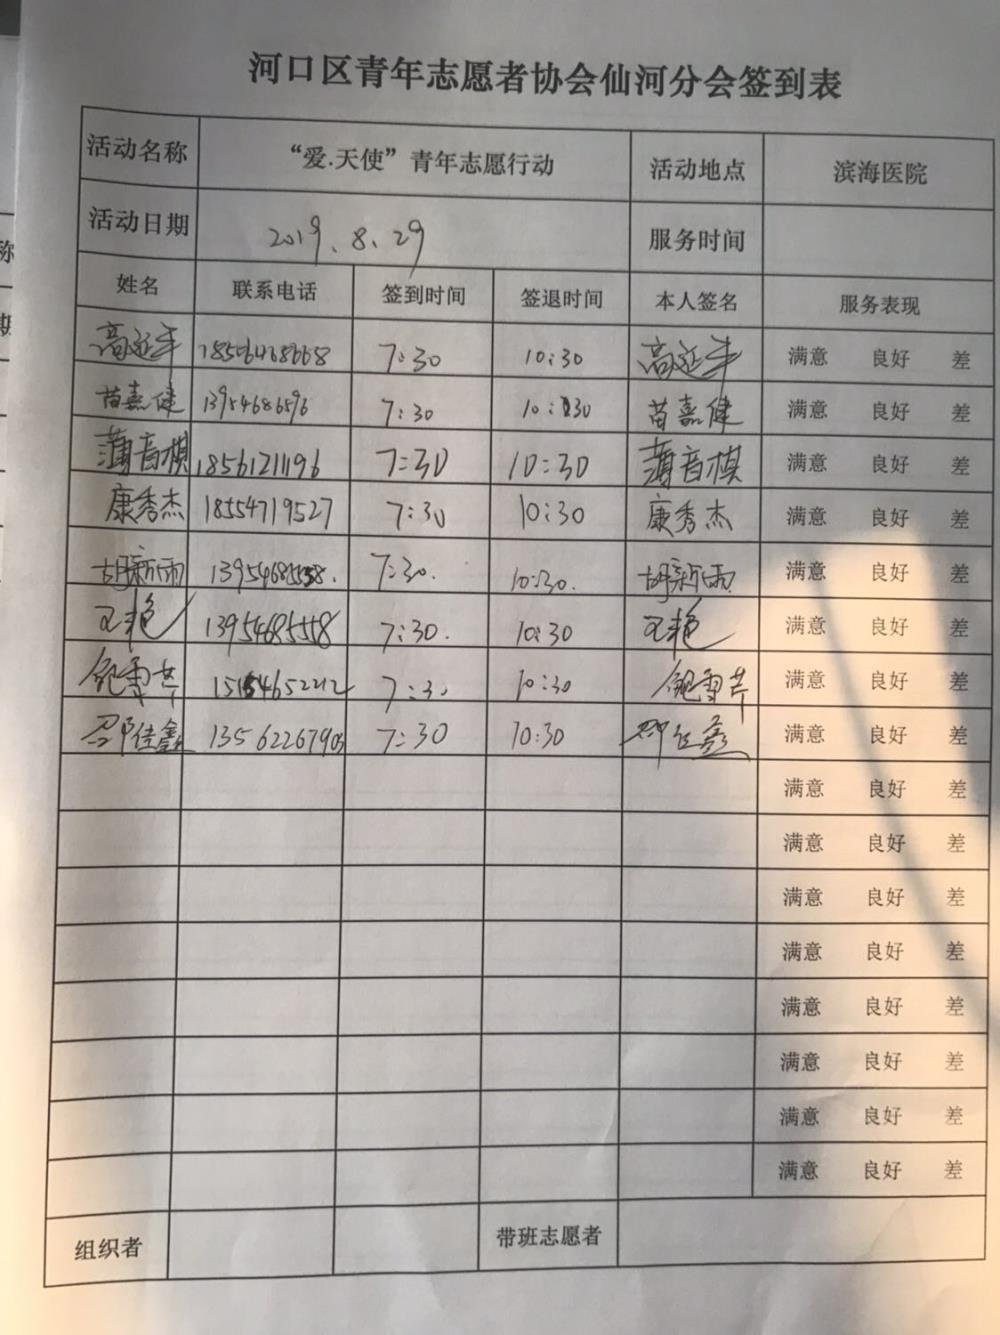 河口区青年志愿者协会仙河分会签到表
活动名称 “爱.天使”青年志愿行动 活动地点 滨海医院
活动日期 2019.8.29 服务时间
姓名 联系电话 签到时间 签退时间 本人签名 服务表现
高延丰 18556468668 7:30 10:30 高延丰 满意 良好 差
苗嘉健 13954686596 7:30 10:30 苗嘉健 满意 良好 差
薄音棋 18561211196 7:30 10:30 薄音棋 满意 良好 差
康秀杰 18554719527 7:30 10:30 康秀杰 满意 良好 差
胡新雨 13954685558. 7:30. 10:30. 胡新雨 满意 良好 差
王艳 13954685558 7:30. 10:30 王艳 满意 良好 差
鲍雪芹 15154652212 7:30 10:30 鲍雪芹 满意 良好 差
邵佳鑫 13562267903 7:30 10:30 邵佳鑫 满意 良好 差
满意 良好 差
满意 良好 差
满意 良好 差
满意 良好 差
满意 良好 差
满意 良好 差
满意 良好 差
满意 良好 差
组织者 带班志愿者